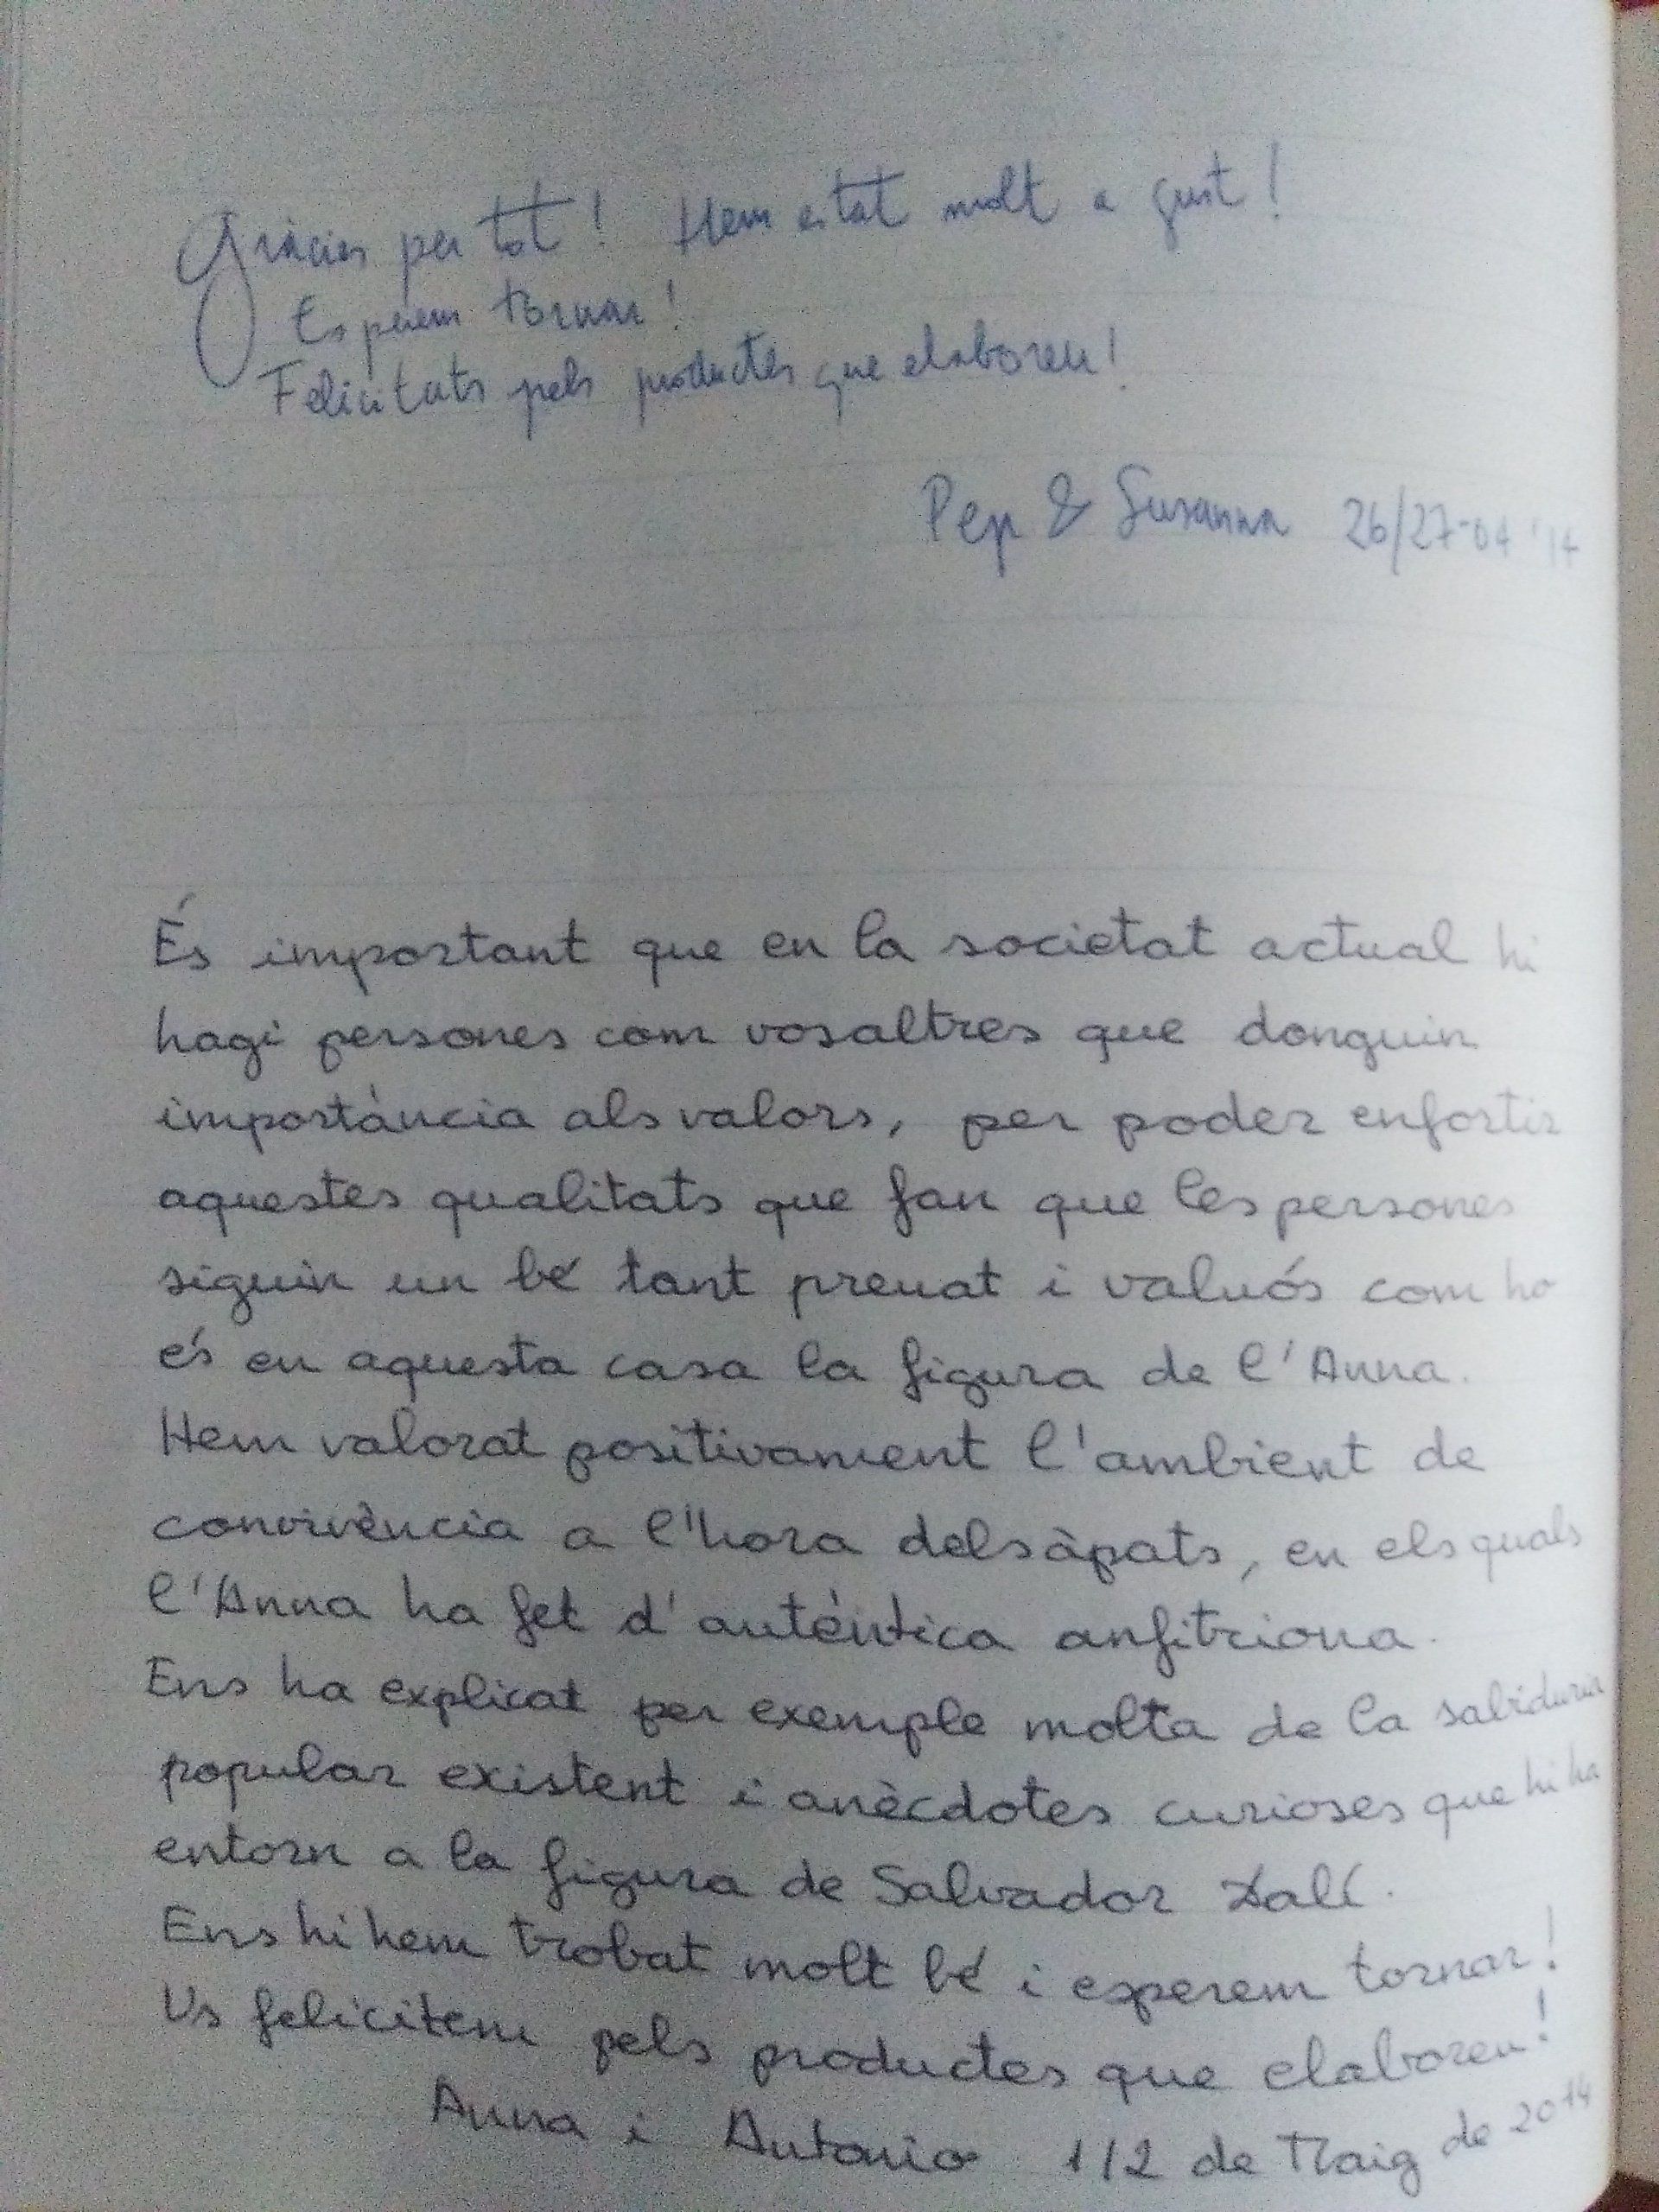 Gràcies per tot! Hem estat molt a gust!
Esperem tornar!
Felicitats pels productes que elaboreu!
Pep & Susanna 26/27-04 '14
És important que en la societat actual hi
hagi persones com vosaltres que donguin
importància als valors, per poder enfortir
aquestes qualitats que fan que les persones
siguin un bé tant preuat i valuós com ho
és en aquesta casa la figura de l'Anna.
Hem valorat positivament l'ambient de
convivència a l'hora dels àpats, en els quals
l'Anna ha fet d'autèntica anfitriona.
Ens ha explicat per exemple molta de la sabiduria
popular existent i anècdotes curioses que hi ha
entorn a la figura de Salvador Dalí.
Ens hi hem trobat molt bé i esperem tornar!
Us felicitem pels productes que elaboreu!
Anna i Antonio 1/2 de Maig de 2014